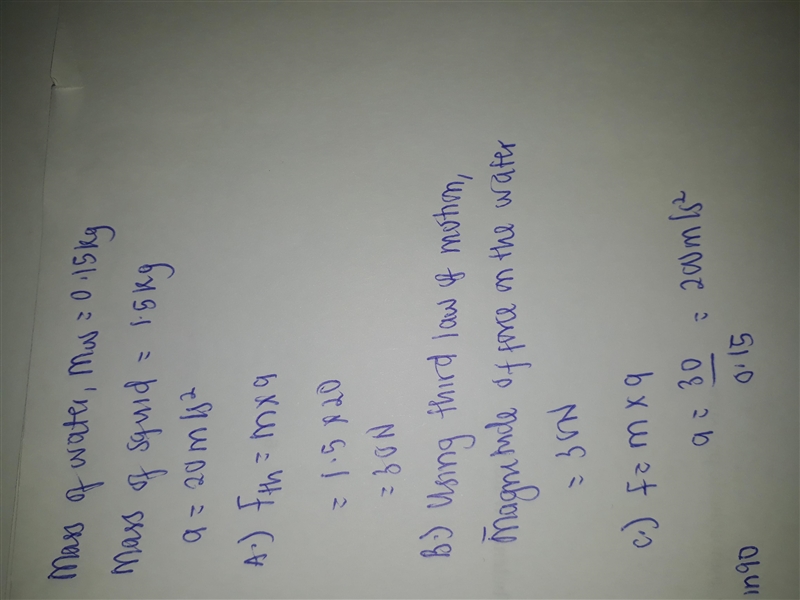 Mass of water, mw = 0.15kg
Mass of squid = 1.5kg
a = 20m/s²
A.) Fth = m x a
= 1.5 x 20
= 30N
B.) Using third law of motion,
Magnitude of force on the water
= 30N
C.) F = m x a
a = 30/0.15 = 200m/s²
in90